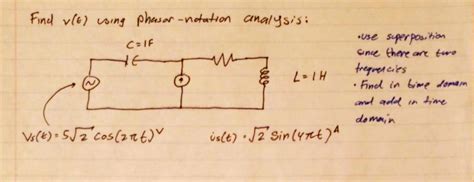 Find v(t) using phasor-notation analysis:
C=1F
L=1H
Vs(t)=5√2 cos(2πt)V
is(t)=√2 sin(4πt)A
•use superposition
since there are two
frequencies
•Find in time domain
and add in time
domain